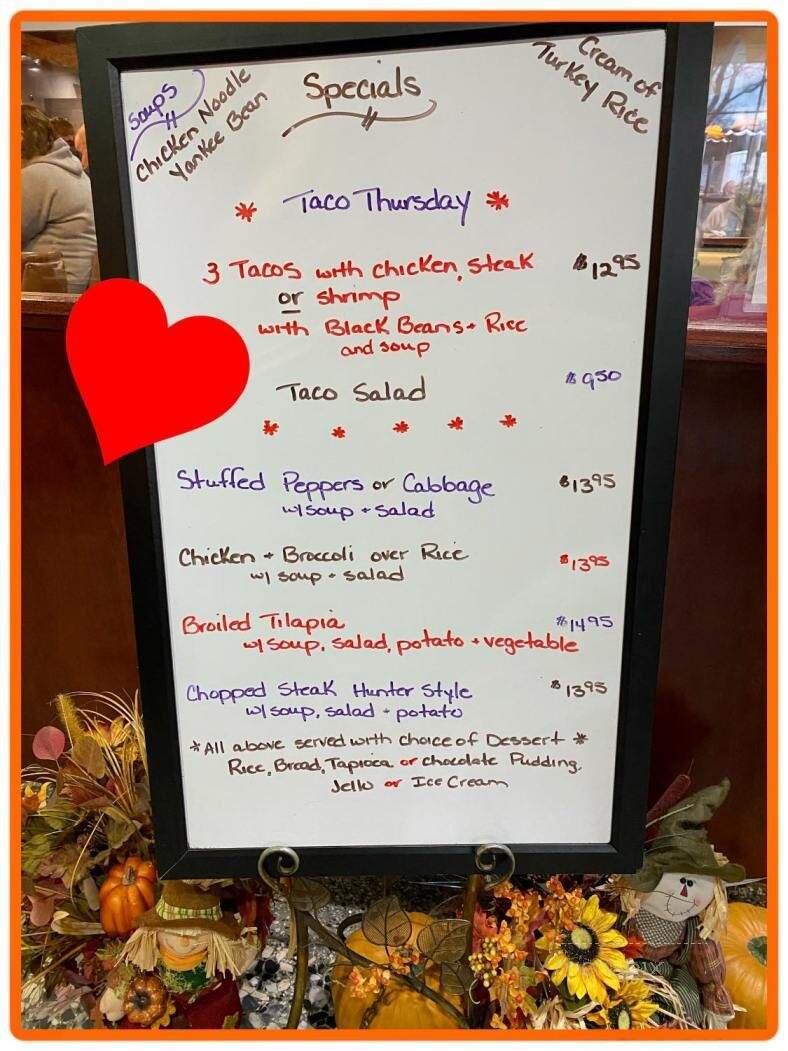 Soups
Chicken Noodle
Yankee Bean
Specials
Cream of
Turkey Rice
* Taco Thursday *
3 Tacos with chicken, steak $12.95
or shrimp
with Black Beans + Rice
and soup
Taco Salad $9.50
* * * * *
Stuffed Peppers or Cabbage $13.95
w/ soup + salad
Chicken + Broccoli over Rice $13.95
w/ soup + salad
Broiled Tilapia $14.95
w/ soup, salad, potato + vegetable
Chopped Steak Hunter Style $13.95
w/ soup, salad + potato
*All above served with choice of Dessert *
Rice, Bread, Tapioca or chocolate Pudding,
Jello or Ice Cream